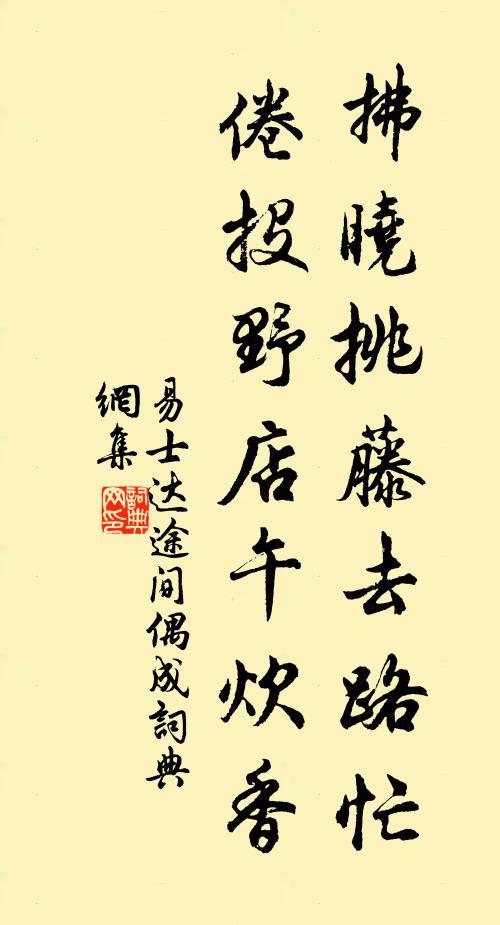 拂曉挑藤去路忙
倦投野店午炊香
易士达途间偶成詞典
網集
詞典
网印